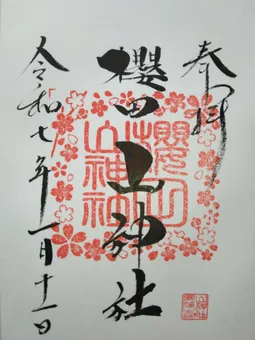 奉拝
櫻田山神社
令和七年一月十一日
櫻田
山神社